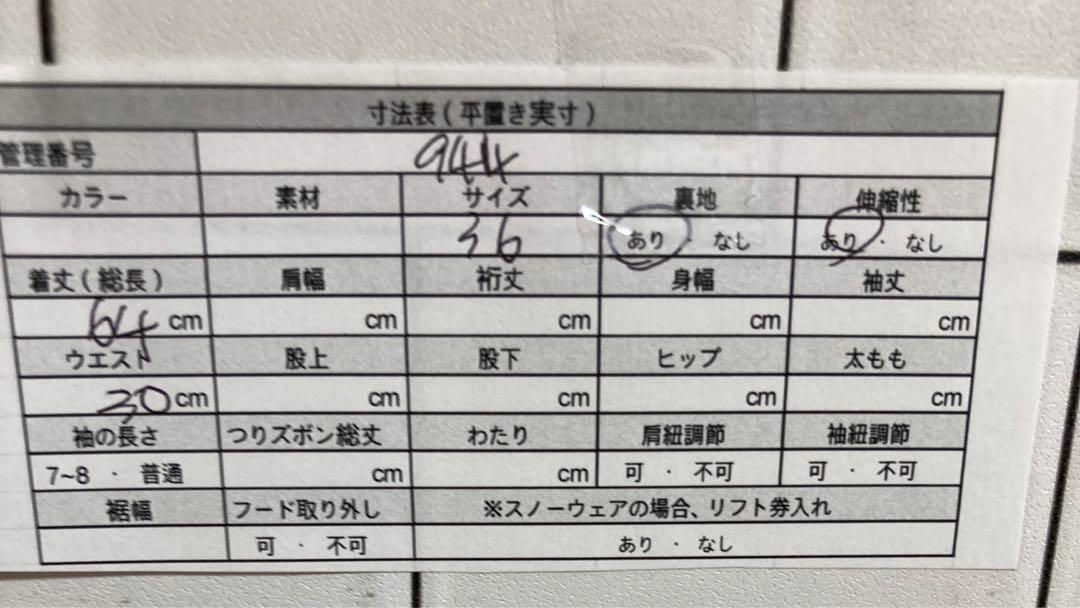 寸法表(平置き実寸)
管理番号 944
カラー 素材 サイズ 裏地 伸縮性
36 あり ・ なし あり ・ なし
着丈(総長) 肩幅 裄丈 身幅 袖丈
64 cm cm cm cm cm
ウエスト 股上 股下 ヒップ 太もも
30 cm cm cm cm cm
袖の長さ つりズボン総丈 わたり 肩紐調節 袖紐調節
7~8 ・ 普通 cm cm 可 ・ 不可 可 ・ 不可
裾幅 フード取り外し ※スノーウェアの場合、リフト券入れ
可 ・ 不可 あり ・ なし